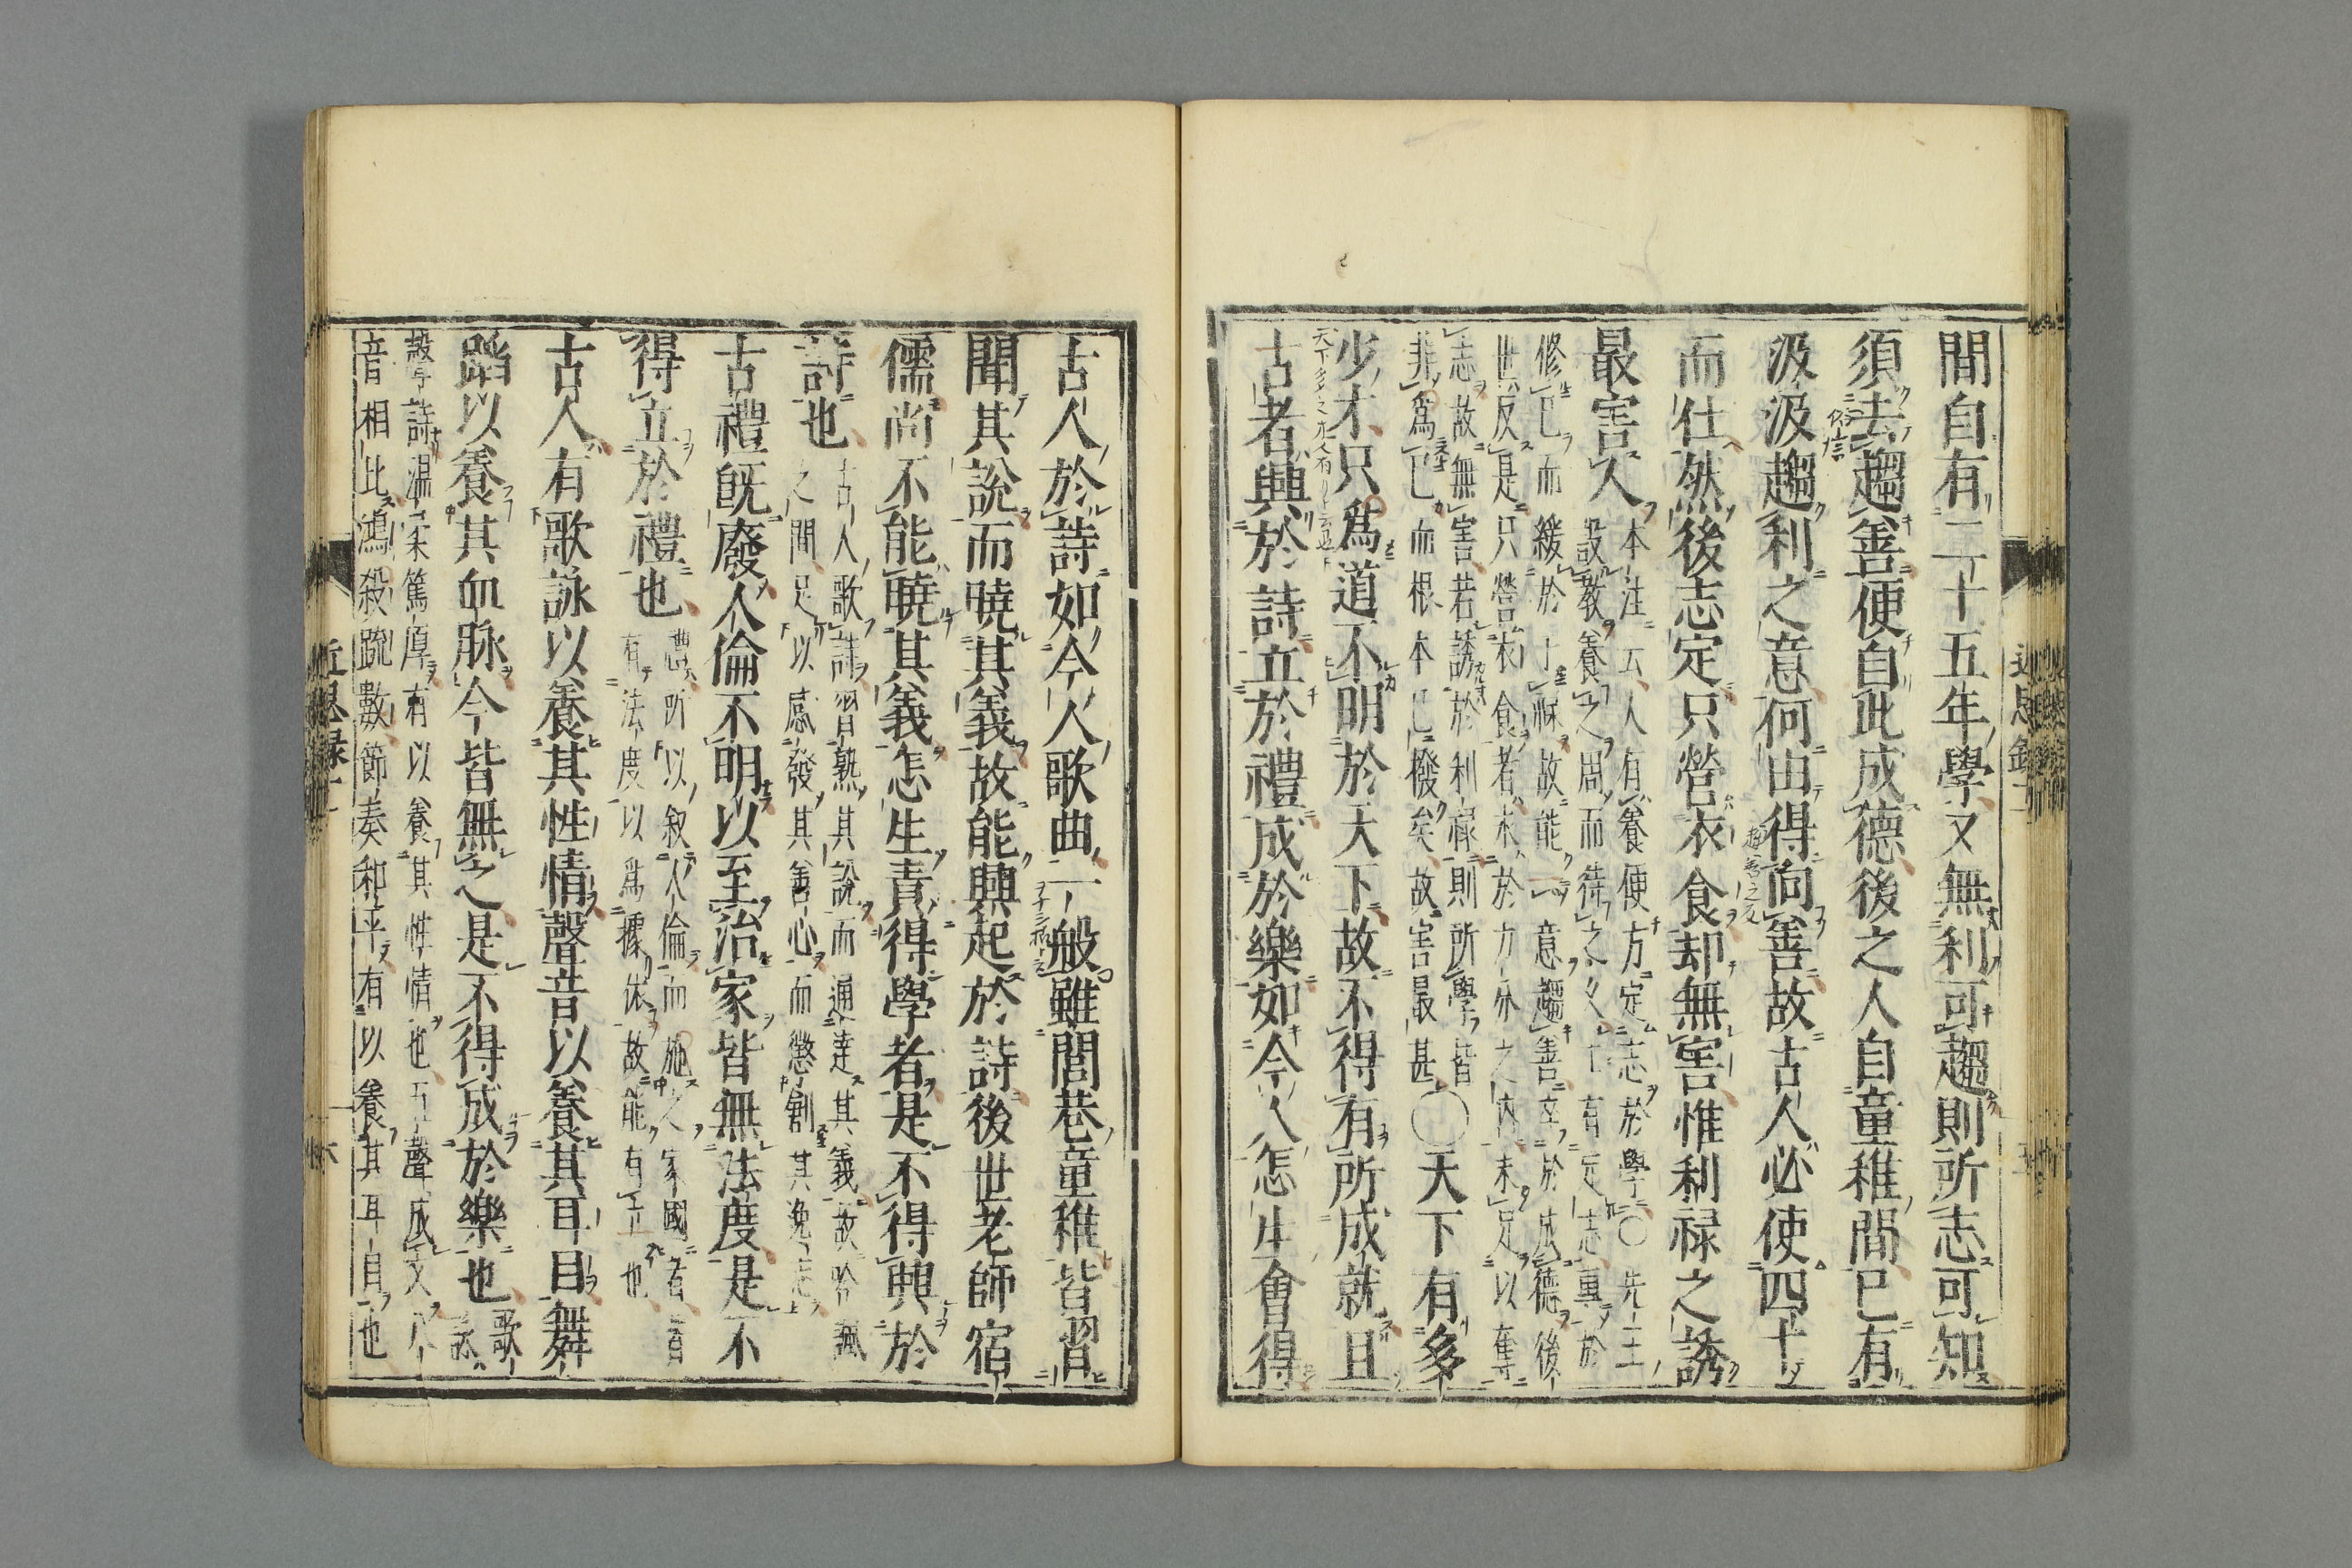 間自有二十五年學又無利可趨則所志可知
須去趨善便自此成德後之人自童稚間已有
汲汲趨利之意何由得向善故古人必使四十
而仕然後志定只營衣食却無害惟利禄之誘
最害人
本注云人有養便方定志於學〇先王
設教養之周而待之久士有定志專於
修己而緩於干禄故能一意趨善卒於成德後
世反是只營衣食者求於力分之内未足以奪
志故無害若誘於利禄則所學皆
非爲己而根本已撥矣故害最甚
〇天下有多
少才只爲道不明於天下故不得有所成就且
古者興於詩立於禮成於樂如今人怎生會得
古人於詩如今人歌曲一般雖閭巷童稚皆習
聞其說而曉其義故能興起於詩後世老師宿
儒尚不能曉其義怎生責得學者是不得興於
詩也
古人歌詩習熟其說而通達其義故吟諷
之間足以感發其善心而懲創其逸志
古禮既廢人倫不明以至治家皆無法度是不
得立於禮也
禮所以叙人倫而施之家國者皆
有法度以爲據依故能有立也
古人有歌詠以養其性情聲音以養其耳目舞
蹈以養其血脉今皆無之是不得成於樂也
歌
詠
聲詩温柔篤厚有以養其性情也五聲成文八
音相比鴻殺疏數節奏和平有以養其耳目也
近思録二
六